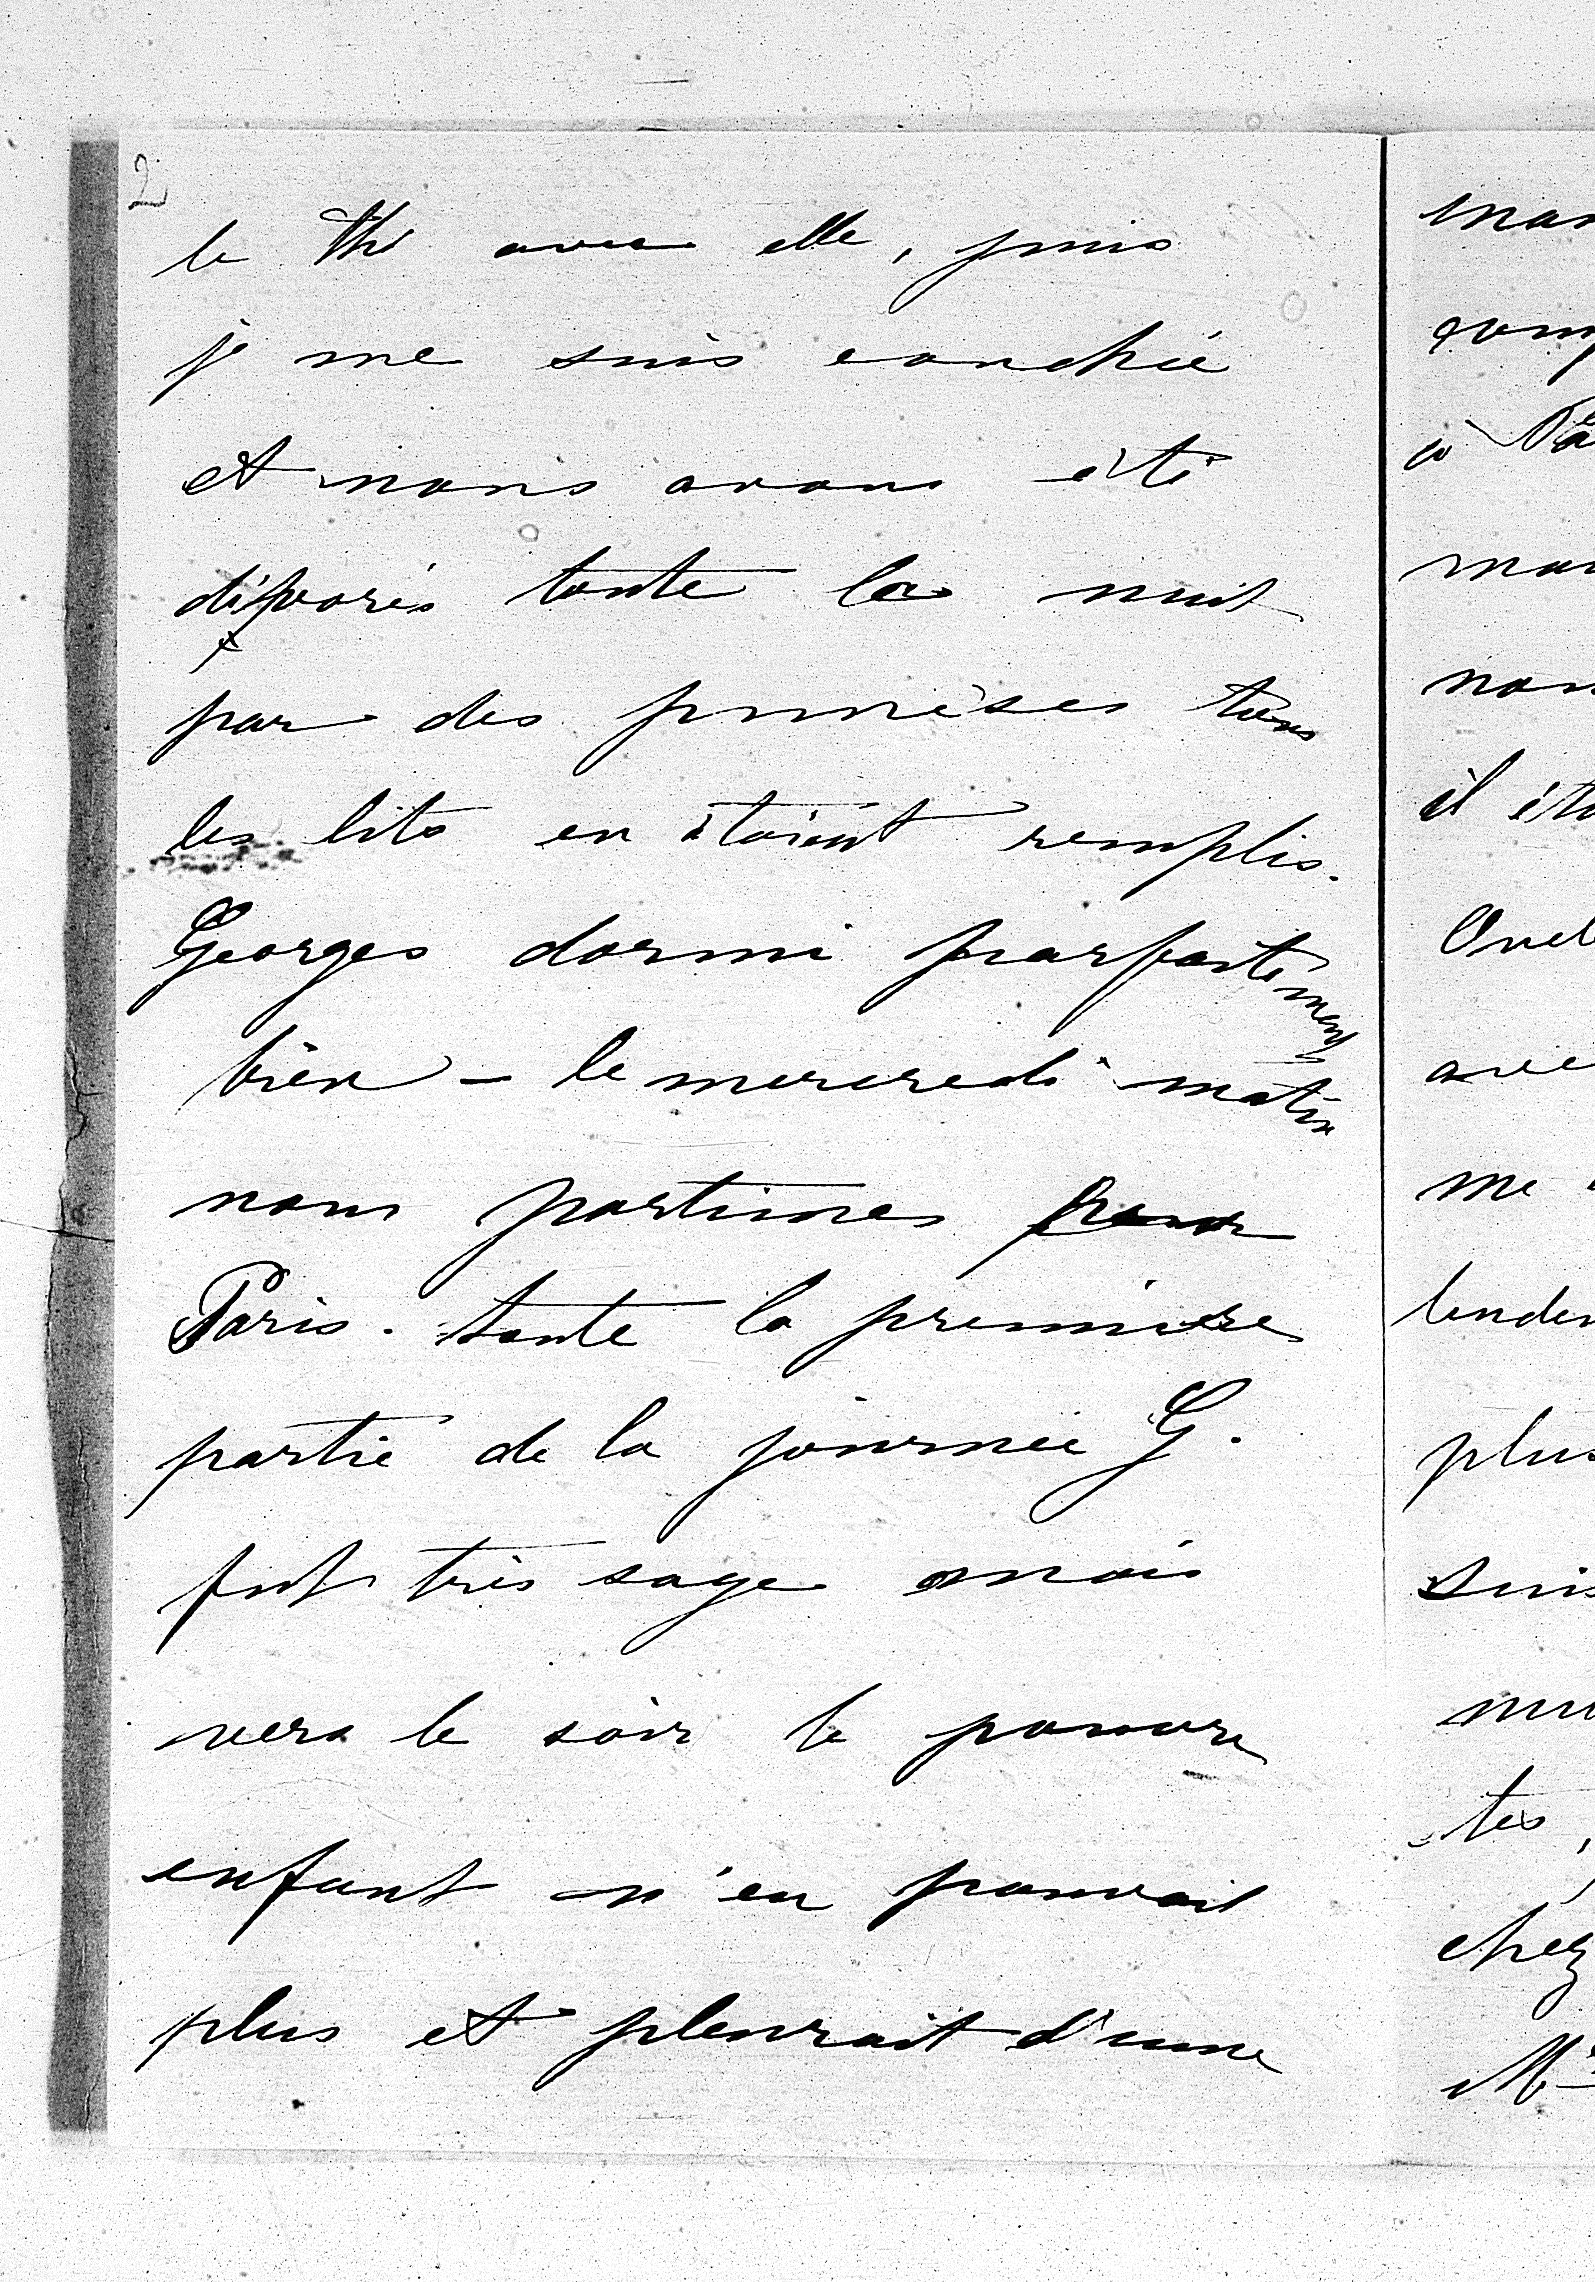 2
le thé avec elle, puis
je me suis couchée
et nous avons été
dévorés toute la nuit
par des punaises tous
les lits en étaient remplis.
Georges dormi parfaitement
bien – le mercredi matin
nous partimes pour
Paris. toute la première
partie de la journée G.
fut très sage mais
vers le soir le pauvre
enfant n'en pouvait
plus et pleurait d'une
il
à
me
plus
suis
chez